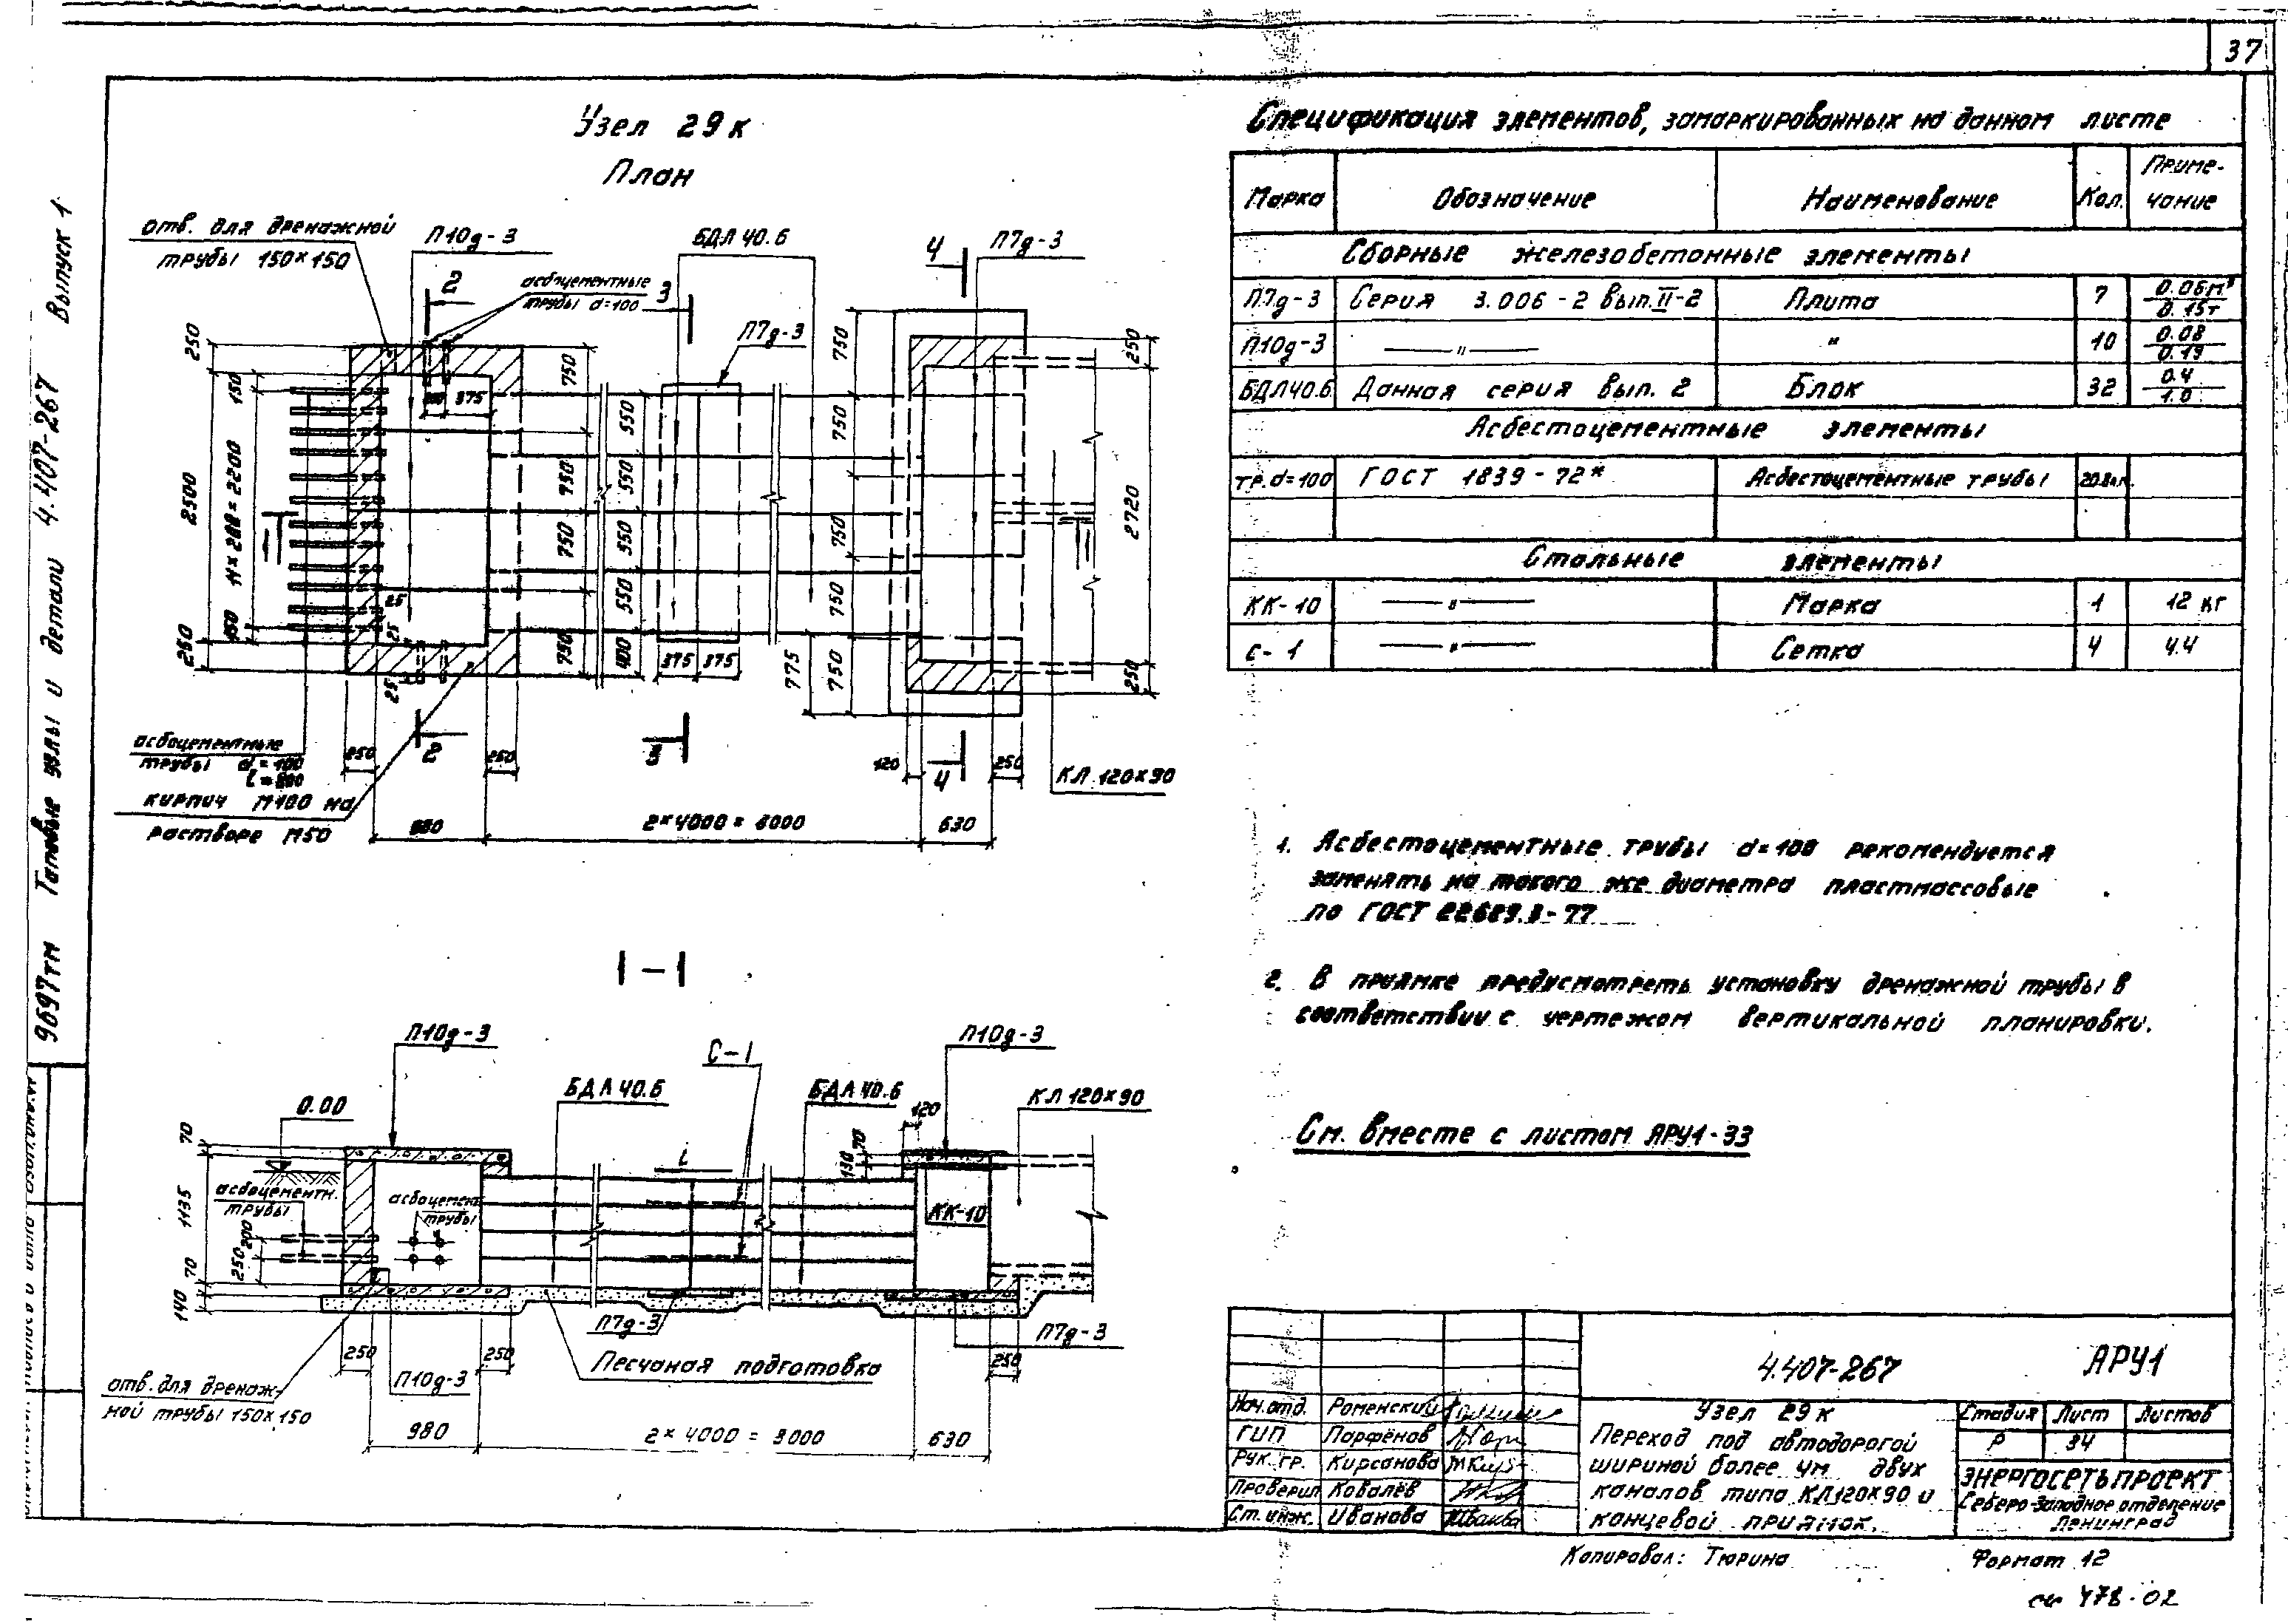 37
Узел 29к
План
отв. для дренажной
трубы 150×150
П10д-3
БДЛ 40.6
П7д-3
асбоцементные
трубы d=100
2
3
4
П7д-3
250
2500
250
150
11×200=2200
150
375
25
25
25
750
750
750
750
550
550
550
550
400
375 375
750
750
750
750
750
775
250
2720
250
асбоцементные
трубы d=100
кирпич М100 на
растворе М50
250
2
250
3
120
4
250
КЛ 120×90
2×4000=8000
630
1-1
П10д-3
С-1
П10д-3
БДЛ 40.6
БДЛ 40.6
КЛ 120×90
0.00
120
70
130
70
1135
70
140
асбоцементн.
трубы
асбоцемент.
трубы
200
250
КК-10
П7д-3
П7д-3
Песчаная подготовка
250
250
250
П10д-3
отв. для дренаж-
ной трубы 150×150
980
2×4000=8000
630
Спецификация элементов, замаркированных на данном листе
Марка Обозначение Наименование Кол. Приме-
чание
Сборные железобетонные элементы
П7д-3 Серия 3.006-2 Вып.II-2 Плита 7 0.06м³
0.15т
П10д-3 —"— " 10 0.08
0.19
БДЛ40.6 Данная серия вып. 2 Блок 32 0.4
1.0
Асбестоцементные элементы
тр.d=100 ГОСТ 1839-72* Асбестоцементные трубы
Стальные элементы
КК-10 —"— Марка 1 12 кг
С-1 —"— Сетка 4 4.4
1. Асбестоцементные трубы d=100 рекомендуется
заменять на такого же диаметра пластмассовые
по ГОСТ 22689.3-77
2. В приямке предусмотреть установку дренажной трубы в
соответствии с чертежом вертикальной планировки.
См. вместе с листом АРУ1-33
4.407-267 АРУ1
Нач.отд. Роменский
ГИП Парфёнов
Рук. гр. Кирсанова
Проверил Ковалёв
Ст. инж. Иванова
Узел 29к
Переход под автодорогой
шириной более 4м двух
каналов типа КЛ120×90 и
концевой приямок.
Стадия Лист Листов
Р 34
ЭНЕРГОСЕТЬПРОЕКТ
Северо-Западное отделение
Ленинград
Копировал: Тюрина Формат 12
478-02
9697тм Типовые узлы и детали 4.407-267 Выпуск 1